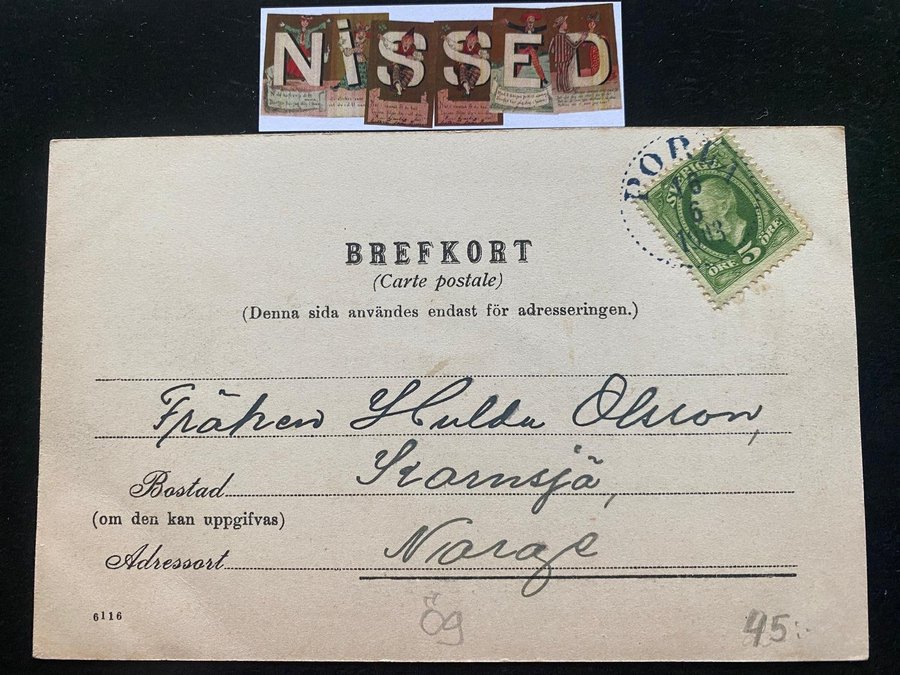 NiSSED
SVERIGE
6
FEM
5 ÖRE
ÖRE
BREFKORT
(Carte postale)
(Denna sida användes endast för adresseringen.)
Fröken Hulda Olsson,
Bostad Kornsjö,
(om den kan uppgifvas)
Adressort Norge
6116
Ög
45:-